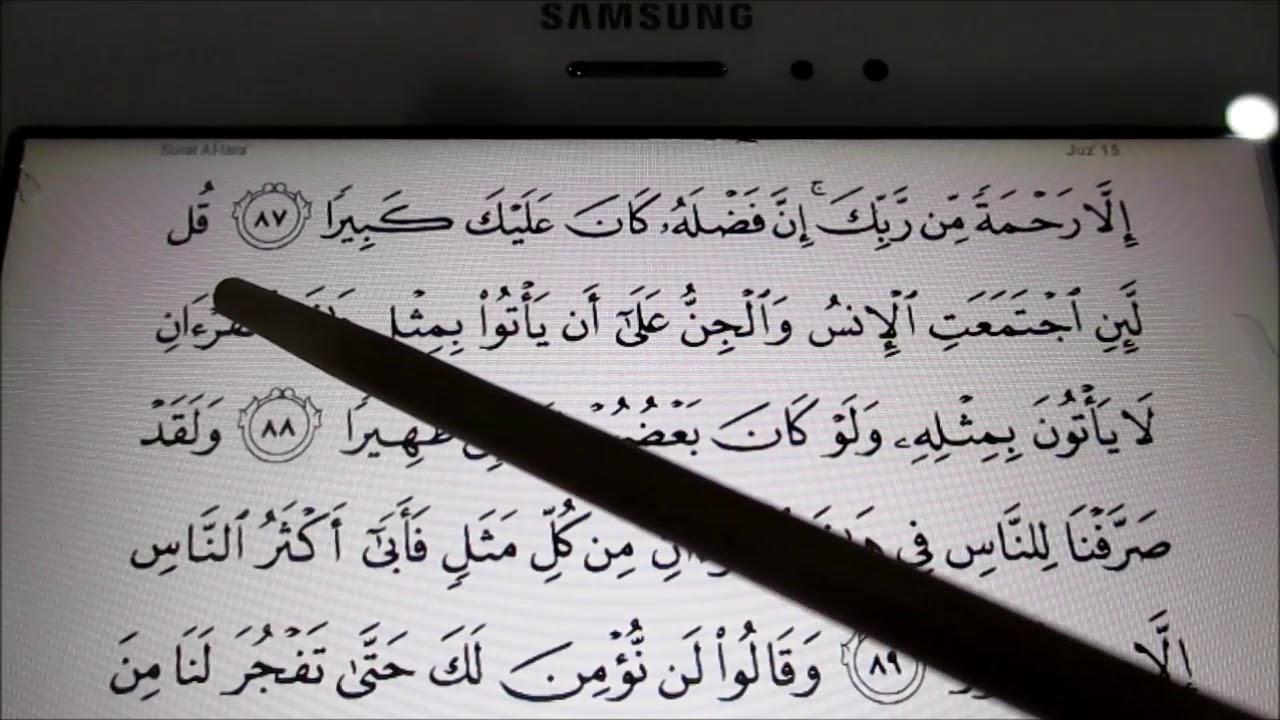 SAMSUNG
Surat Al-Isra' Juz' 15
إِلَّا رَحْمَةً مِّن رَّبِّكَ ۚ إِنَّ فَضْلَهُۥ كَانَ عَلَيْكَ كَبِيرًا ٨٧ قُل
لَّئِنِ ٱجْتَمَعَتِ ٱلْإِنسُ وَٱلْجِنُّ عَلَىٰٓ أَن يَأْتُوا۟ بِمِثْلِ
لَا يَأْتُونَ بِمِثْلِهِۦ وَلَوْ كَانَ ظَهِيرًا ٨٨ وَلَقَدْ
صَرَّفْنَا لِلنَّاسِ فِى مِن كُلِّ مَثَلٍ فَأَبَىٰٓ أَكْثَرُ ٱلنَّاسِ
إِلَّا ٨٩ وَقَالُوا۟ لَن نُّؤْمِنَ لَكَ حَتَّىٰ تَفْجُرَ لَنَا مِنَ